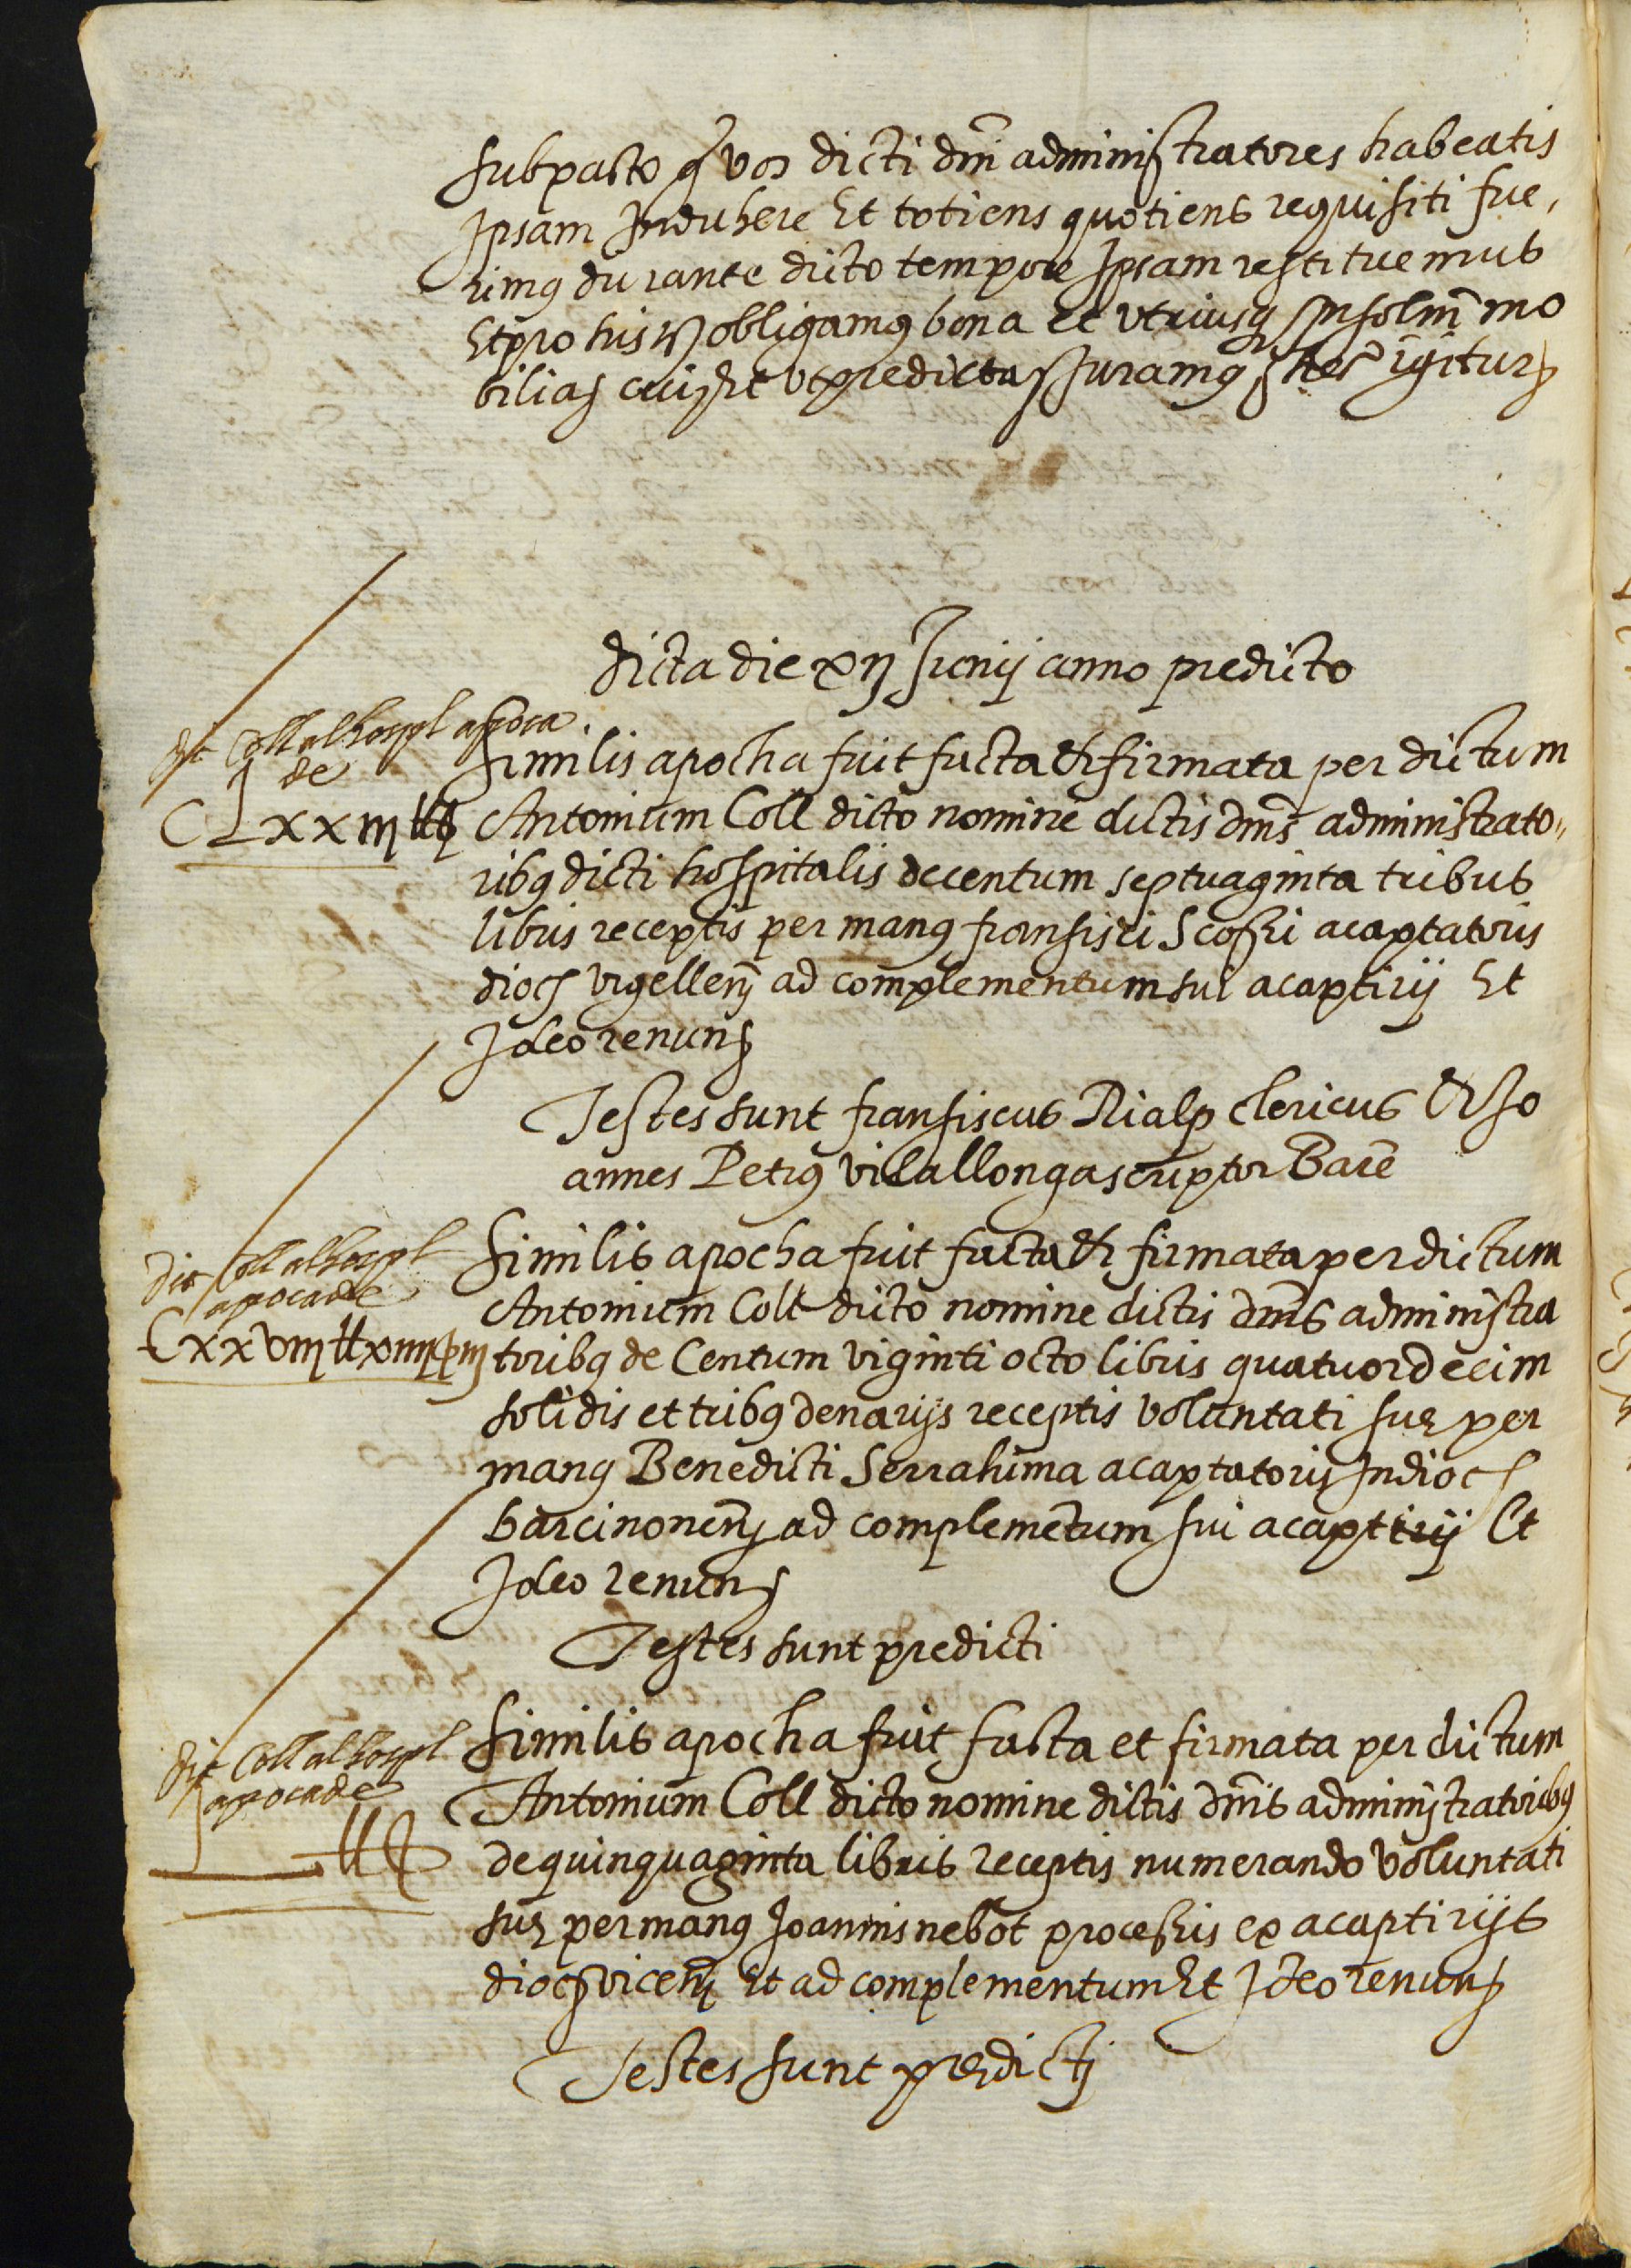 subpacto q vos dicti dni administratores habeatis
Ipsam Induhere Et totiens quotiens requisiti fue,
rimq durante dicto tempore Ipsam restituemus
Et pro his obligamq bona et utriusq Insolm mo
bilia ut predicta Juramq igitur
dicta die xij Junij anno predicto
dit Coll al hospl apoca
de
CLxxiij ll
Similis apocha fuit facta et firmata per dictum
Antonium Coll dicto nomine dictis dnis administrato,,
ribq dicti hospitalis de centum septuaginta tribus
libris receptis per manq fransisci Scofri acaptatoris
dioc urgellen ad complementum sui acaptirij Et
Ideo renun
Testes sunt fransiscus Rialp clericus et Jo
annes Petrq vilallonga scriptor Barc
dit Coll al hospl
apoca de
Cxxviij ll xiiij s iij
Similis apocha fuit facta et firmata per dictum
Antonium Coll dicto nomine dictis dnis administra
toribq de Centum viginti octo libris quatuordecim
solidis et tribq denarijs receptis voluntati sue per
manq Benedicti Serrahima acaptatoris In dioc
barcinonen ad complemetum sui acaptirij Et
Ideo renun
Testes sunt predicti
dit Coll al hospl
apoca de
L ll
Similis apocha fuit facta et firmata per dictum
Antonium Coll dicto nomine dictis dnis administratoribq
de quinquaginta libris receptis numerando voluntati
sue per manq Joannis nebot ex acaptirijs
dioc vicen Et ad complementum Et Ideo renun
Testes sunt predicti